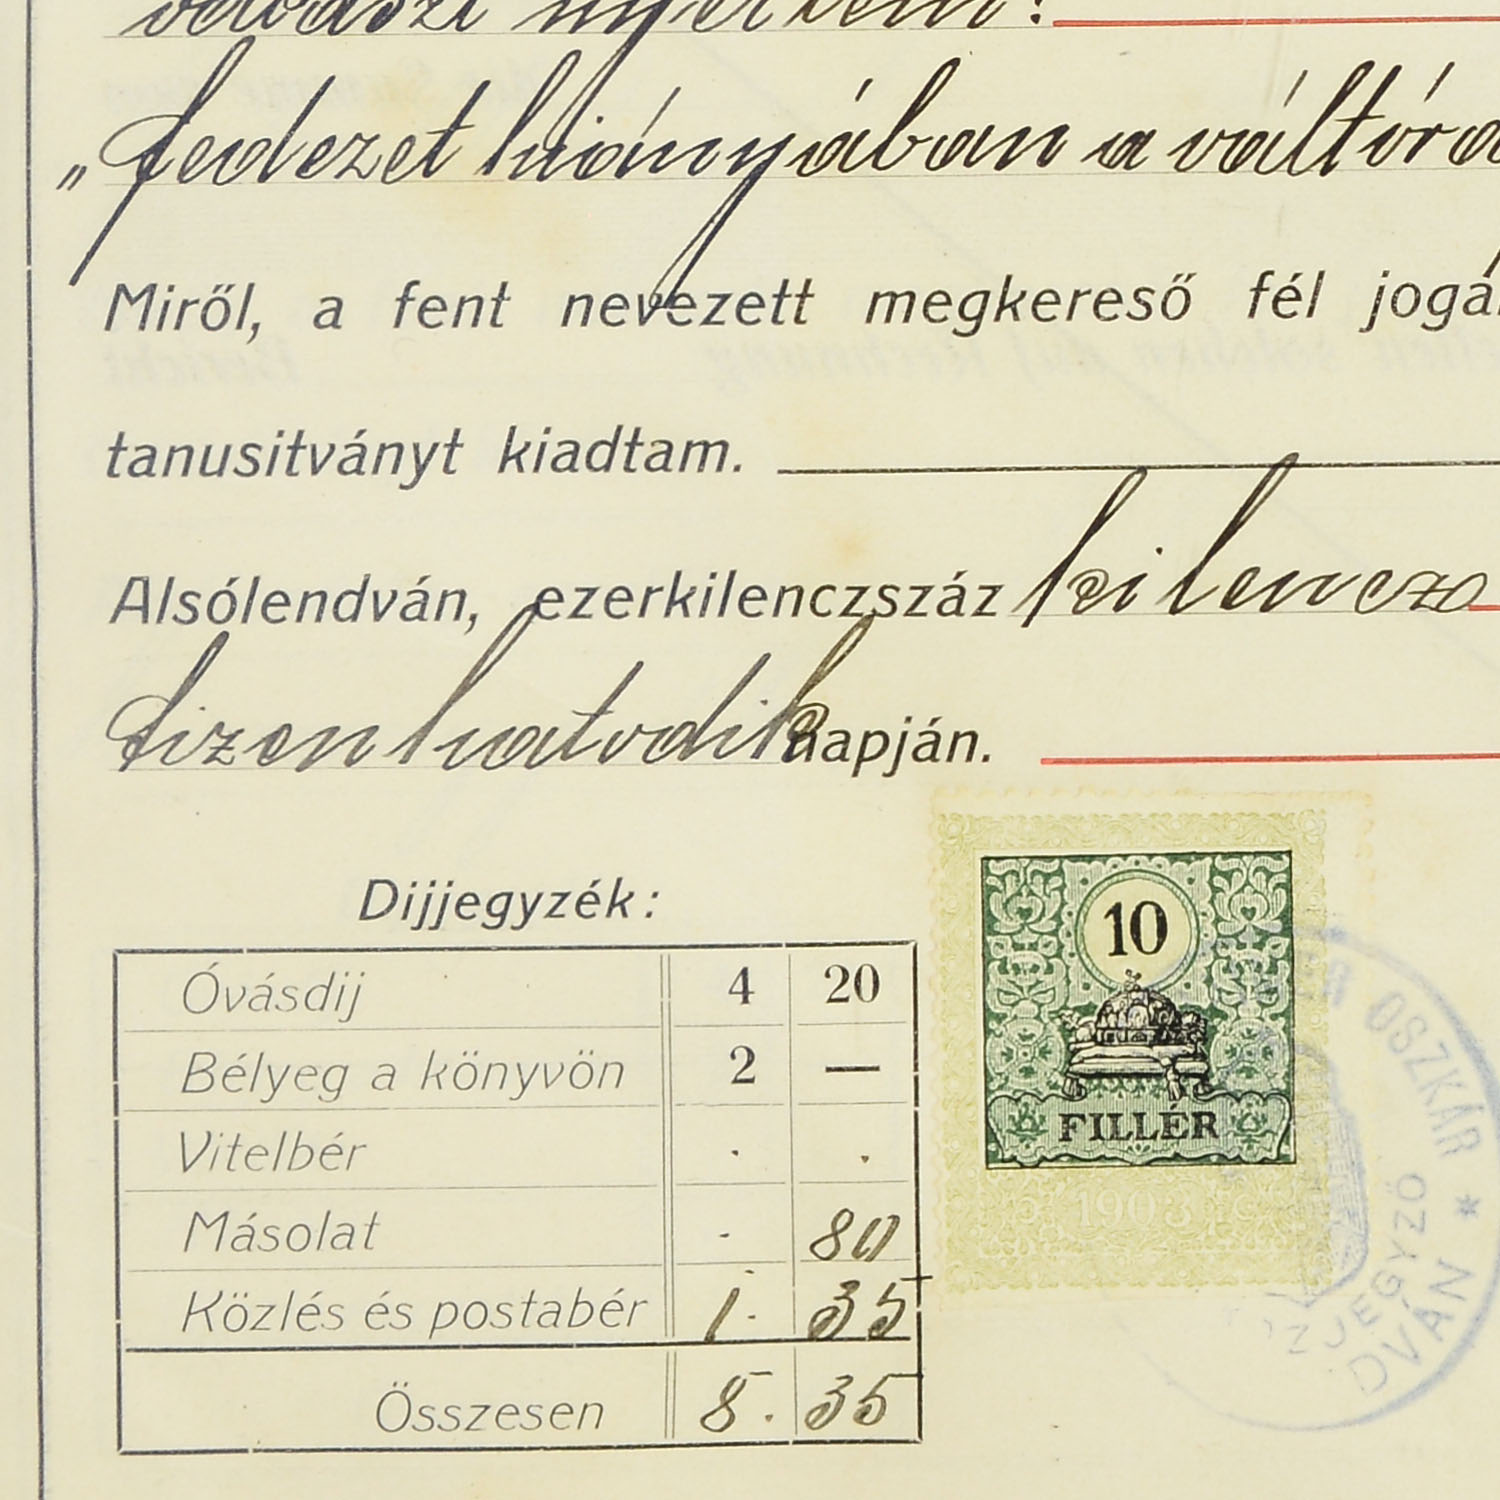 nyertem:
„fedezet hiányában a váltóra
Miről, a fent nevezett megkereső fél
tanusitványt kiadtam.
Alsólendván, ezerkilenczszáz kilencz
tizenhatodik napján.
Dijjegyzék:
Óvásdij 4 20
Bélyeg a könyvön 2 —
Vitelbér . .
Másolat - 80
Közlés és postabér 1. 35
Összesen 8. 35
10
FILLÉR
1903
OSZKÁR *